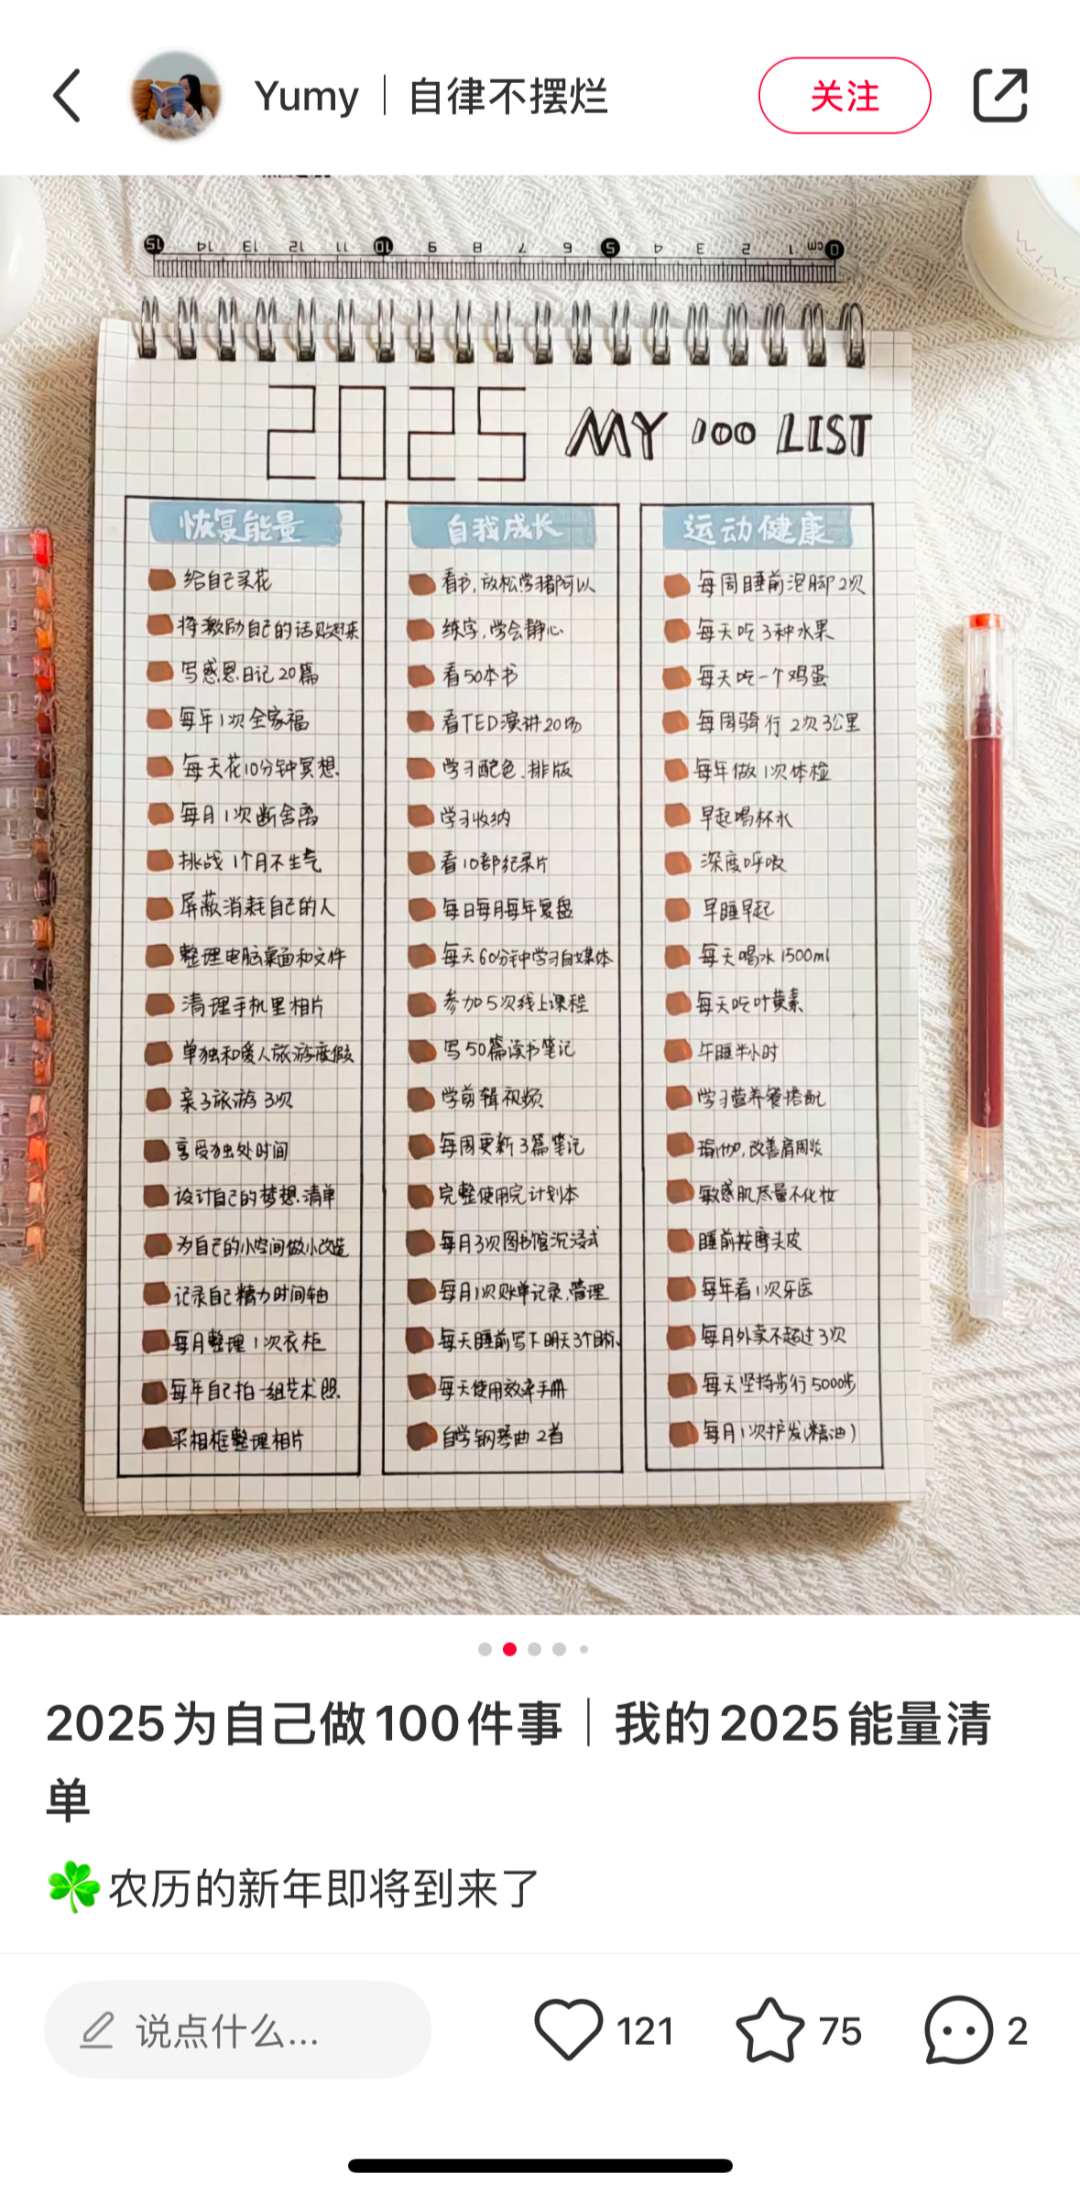 Yumy｜自律不摆烂
关注
15 14 13 12 11 10 9 8 7 6 5 4 3 2 1 cm 0
2025 MY 100 LIST
恢复能量
给自己买花
将激励自己的话贴起来
写感恩日记20篇
每年1次全家福
每天花10分钟冥想
每月1次断舍离
挑战1个月不生气
屏蔽消耗自己的人
整理电脑桌面和文件
清理手机里相片
单独和爱人旅游度假
亲子旅游3次
享受独处时间
设计自己的梦想清单
为自己的小空间做小改造
记录自己精力时间轴
每月整理1次衣柜
每年自己拍一组艺术照
买相框整理相片
自我成长
看书,放松学猪阿以
练字,学会静心
看50本书
看TED演讲20场
学习配色、排版
学习收纳
看10部纪录片
每日每月每年复盘
每天60分钟学习自媒体
参加5次线上课程
写50篇读书笔记
学剪辑视频
每周更新3篇笔记
完整使用完计划本
每月3次图书馆沉浸式
每月1次账单记录、管理
每天睡前写下明天3个目标
每天使用效率手册
自学钢琴曲2首
运动健康
每周睡前泡脚2次
每天吃3种水果
每天吃一个鸡蛋
每周骑行2次3公里
每年做1次体检
早起喝杯水
深度呼吸
早睡早起
每天喝水1500ml
每天吃叶黄素
午睡半小时
学习营养餐搭配
瑜伽,改善肩周炎
敏感肌尽量不化妆
睡前按摩头皮
每年看1次牙医
每月外卖不超过3次
每天坚持步行5000步
每月1次护发(精油)
2025为自己做100件事｜我的2025能量清
单
农历的新年即将到来了
说点什么...
121
75
2